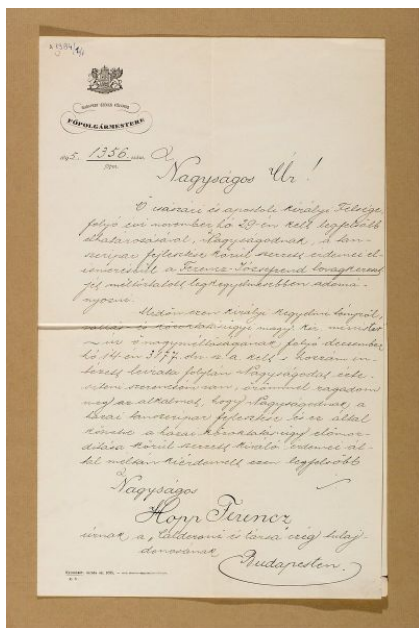 A 1384/14
BUDAPEST SZÉKES FŐVÁROS
FŐPOLGÁRMESTERE
1895. 1356. szám
főpm.
Nagyságos Úr!
Ő császári és apostoli királyi Felsége
folyó évi november hó 29-én kelt legfelsőbb
elhatározásával, Nagyságodnak, a tan-
szeripar fejlesztése körül szerzett érdemei el-
ismeréseül a Ferencz-Józsefrend lovagkereszt-
jét méltóztatott legkegyelmesebben adomá-
nyozni.
Midőn ezen királyi kegyelmi tényről,
vallás- és közoktatásügyi magy. kir. minister
úr ő nagyméltóságának folyó deczember
hó 14-én 3977. sz. a. kelt s hozzám in-
tézett leirata folytán Nagyságodat érte-
síteni szerencsém van, örömmel ragadom
meg az alkalmat, hogy Nagyságodnak, a
hazai tanszeripar fejlesztése és ez által
közvetve a hazai közoktatásügy előmoz-
dítása körül szerzett kiváló érdemei ál-
tal méltán kiérdemelt ezen legfelsőbb
Nagyságos
Hopp Ferencz
úrnak a „Calderoni és társa" czég tulaj-
donosának
Budapesten.